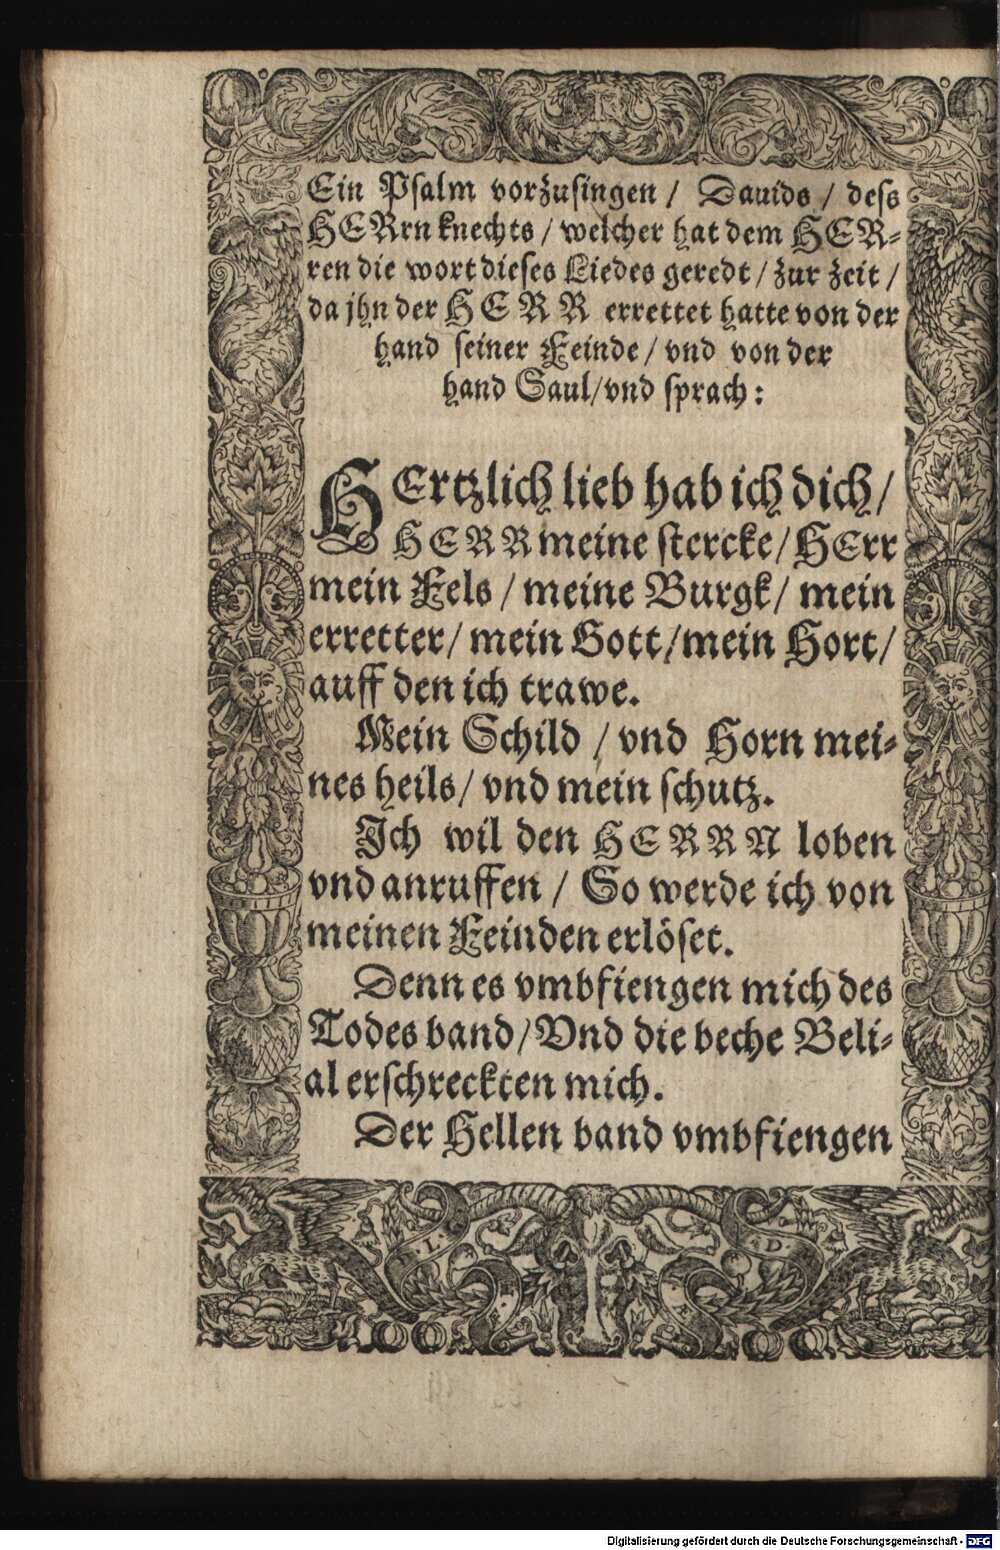 Ein Psalm vorzusingen / Dauids / dess
HERrn knechts / welcher hat dem HER-
ren die wort dieses Liedes geredt / zur zeit /
da jhn der HERR errettet hatte von der
hand seiner Feinde / vnd von der
hand Saul / vnd sprach :
HErtzlich lieb hab ich dich /
HERR meine stercke / HErr
mein Fels / meine Burgk / mein
erretter / mein Gott / mein Hort /
auff den ich trawe.
Mein Schild / vnd Horn mei-
nes heils / vnd mein schutz.
Ich wil den HERRN loben
vnd anruffen / So werde ich von
meinen Feinden erlöset.
Denn es vmbfiengen mich des
Todes band / Vnd die beche Beli-
al erschreckten mich.
Der Hellen band vmbfiengen
L
D
Digitalisierung gefördert durch die Deutsche Forschungsgemeinschaft - DFG